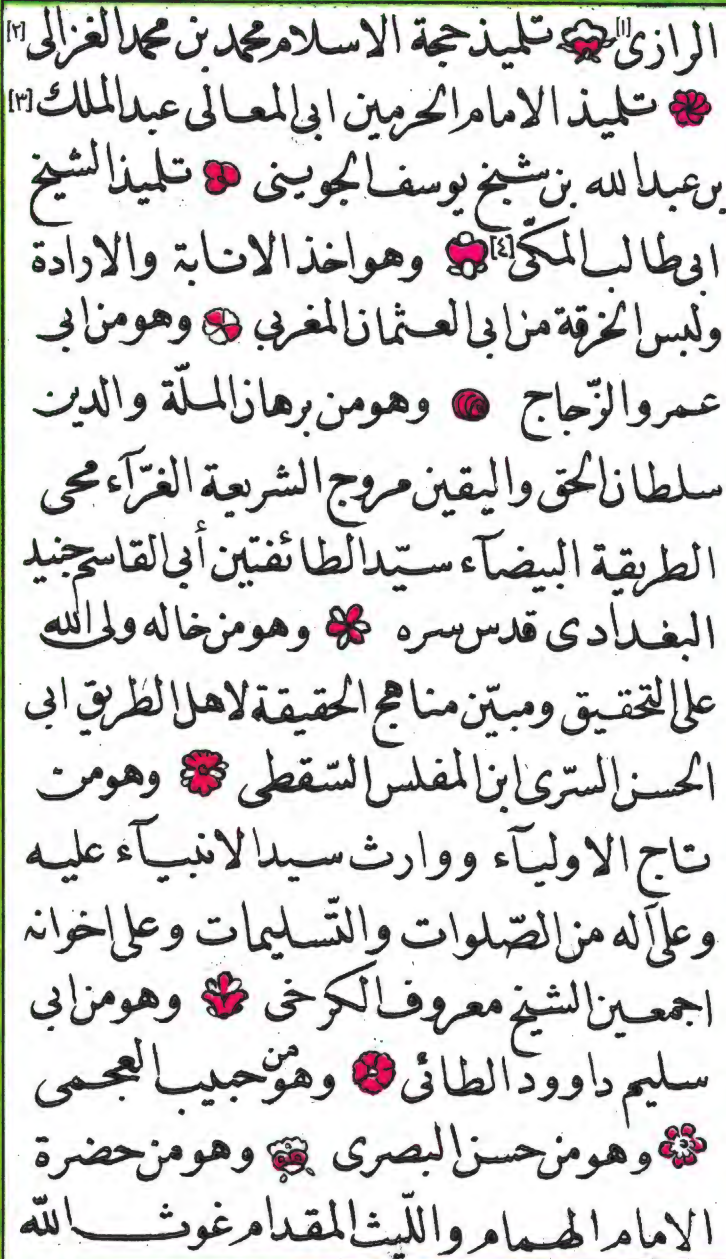 الرازى[١] تلميذ حجة الاسلام محمد بن محمد الغزالى[٢]
تلميذ الامام الحرمين ابى المعالى عبد الملك[٣]
بن عبد الله بن شيخ يوسف الجوينى تلميذ الشيخ
ابى طالب المكّى[٤] وهو اخذ الانابة والارادة
ولبس الخرقة من ابى العثمان المغربي وهو من ابى
عمرو الزّجاج وهو من برهان الملّة والدين
سلطان الحق واليقين مروج الشريعة الغرّآء محى
الطريقة البيضآء سيّد الطائفتين أبى القاسم جنيد
البغدادى قدس سره وهو من خاله ولى الله
على التحقيق ومبيّن مناهج الحقيقة لاهل الطريق ابى
الحسن السّرى ابن المفلس السّقطى وهو من
تاج الاوليآء ووارث سيد الانبيآء عليه
وعلى آله من الصّلوات والتّسليمات وعلى اخوانه
اجمعين الشيخ معروف الكرخى وهو من ابى
سليم داوود الطائى وهو من حبيب العجمى
وهو من حسن البصرى وهو من حضرة
الامام الهمام والليث المقدام غوث الله